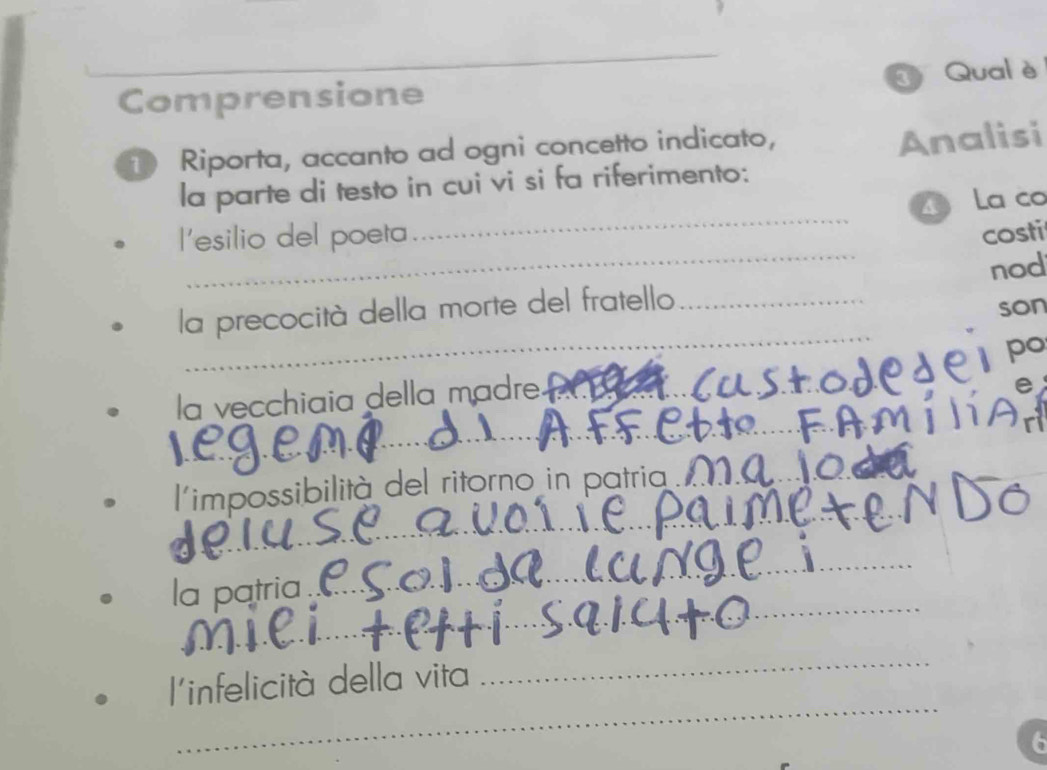 Comprensione
1 Riporta, accanto ad ogni concetto indicato,
la parte di testo in cui vi si fa riferimento:
• l'esilio del poeta
• la precocità della morte del fratello
• la vecchiaia della madre custode dei
legeme di AFFetto FAmiliAr
• l'impossibilità del ritorno in patria ma io da
deluse a voi le palme teNDo
• la patria e sol da lunge i
miei tetti saluto
• l'infelicità della vita
3 Qual è
Analisi
4 La co
costi
nod
son
po
e
ri
6